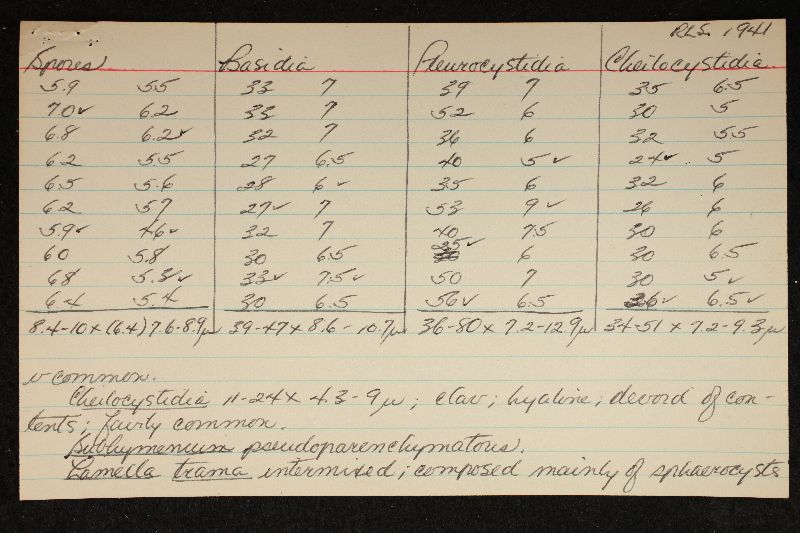 RLS. 1941
Spores Basidia Pleurocystidia Cheilocystidia.
5.9 5.5 33 7 39 7 35 6.5
70✓ 6.2 33 7 52 6 30 5
6.8 6.2✓ 32 7 36 6 32 5.5
6.2 5.5 27 6.5 40 5✓ 24✓ 5
6.5 5.6 28 6✓ 35 6 32 6
62 57 27✓ 7 53 9✓ 26 6
5.9✓ 46✓ 32 7 40 7.5 30 6
60 5.8 30 6.5 35✓ 6 30 6.5
68 5.3✓ 33✓ 7.5✓ 50 7 30 5✓
6.4 5.4 30 6.5 56✓ 6.5 36✓ 6.5✓
8.4-10 x (6.4) 7.6-8.9µ 39-47 x 8.6-10.7µ 36-80 x 7.2-12.9µ 34-51 x 7.2-9.3µ
common.
Cheilocystidia 11-24 x 4.3-9µ; clav; hyaline; devoid of con-
tents; fairly common.
Subhymenium pseudoparenchymatous.
Lamella trama intermixed; composed mainly of sphaerocysts